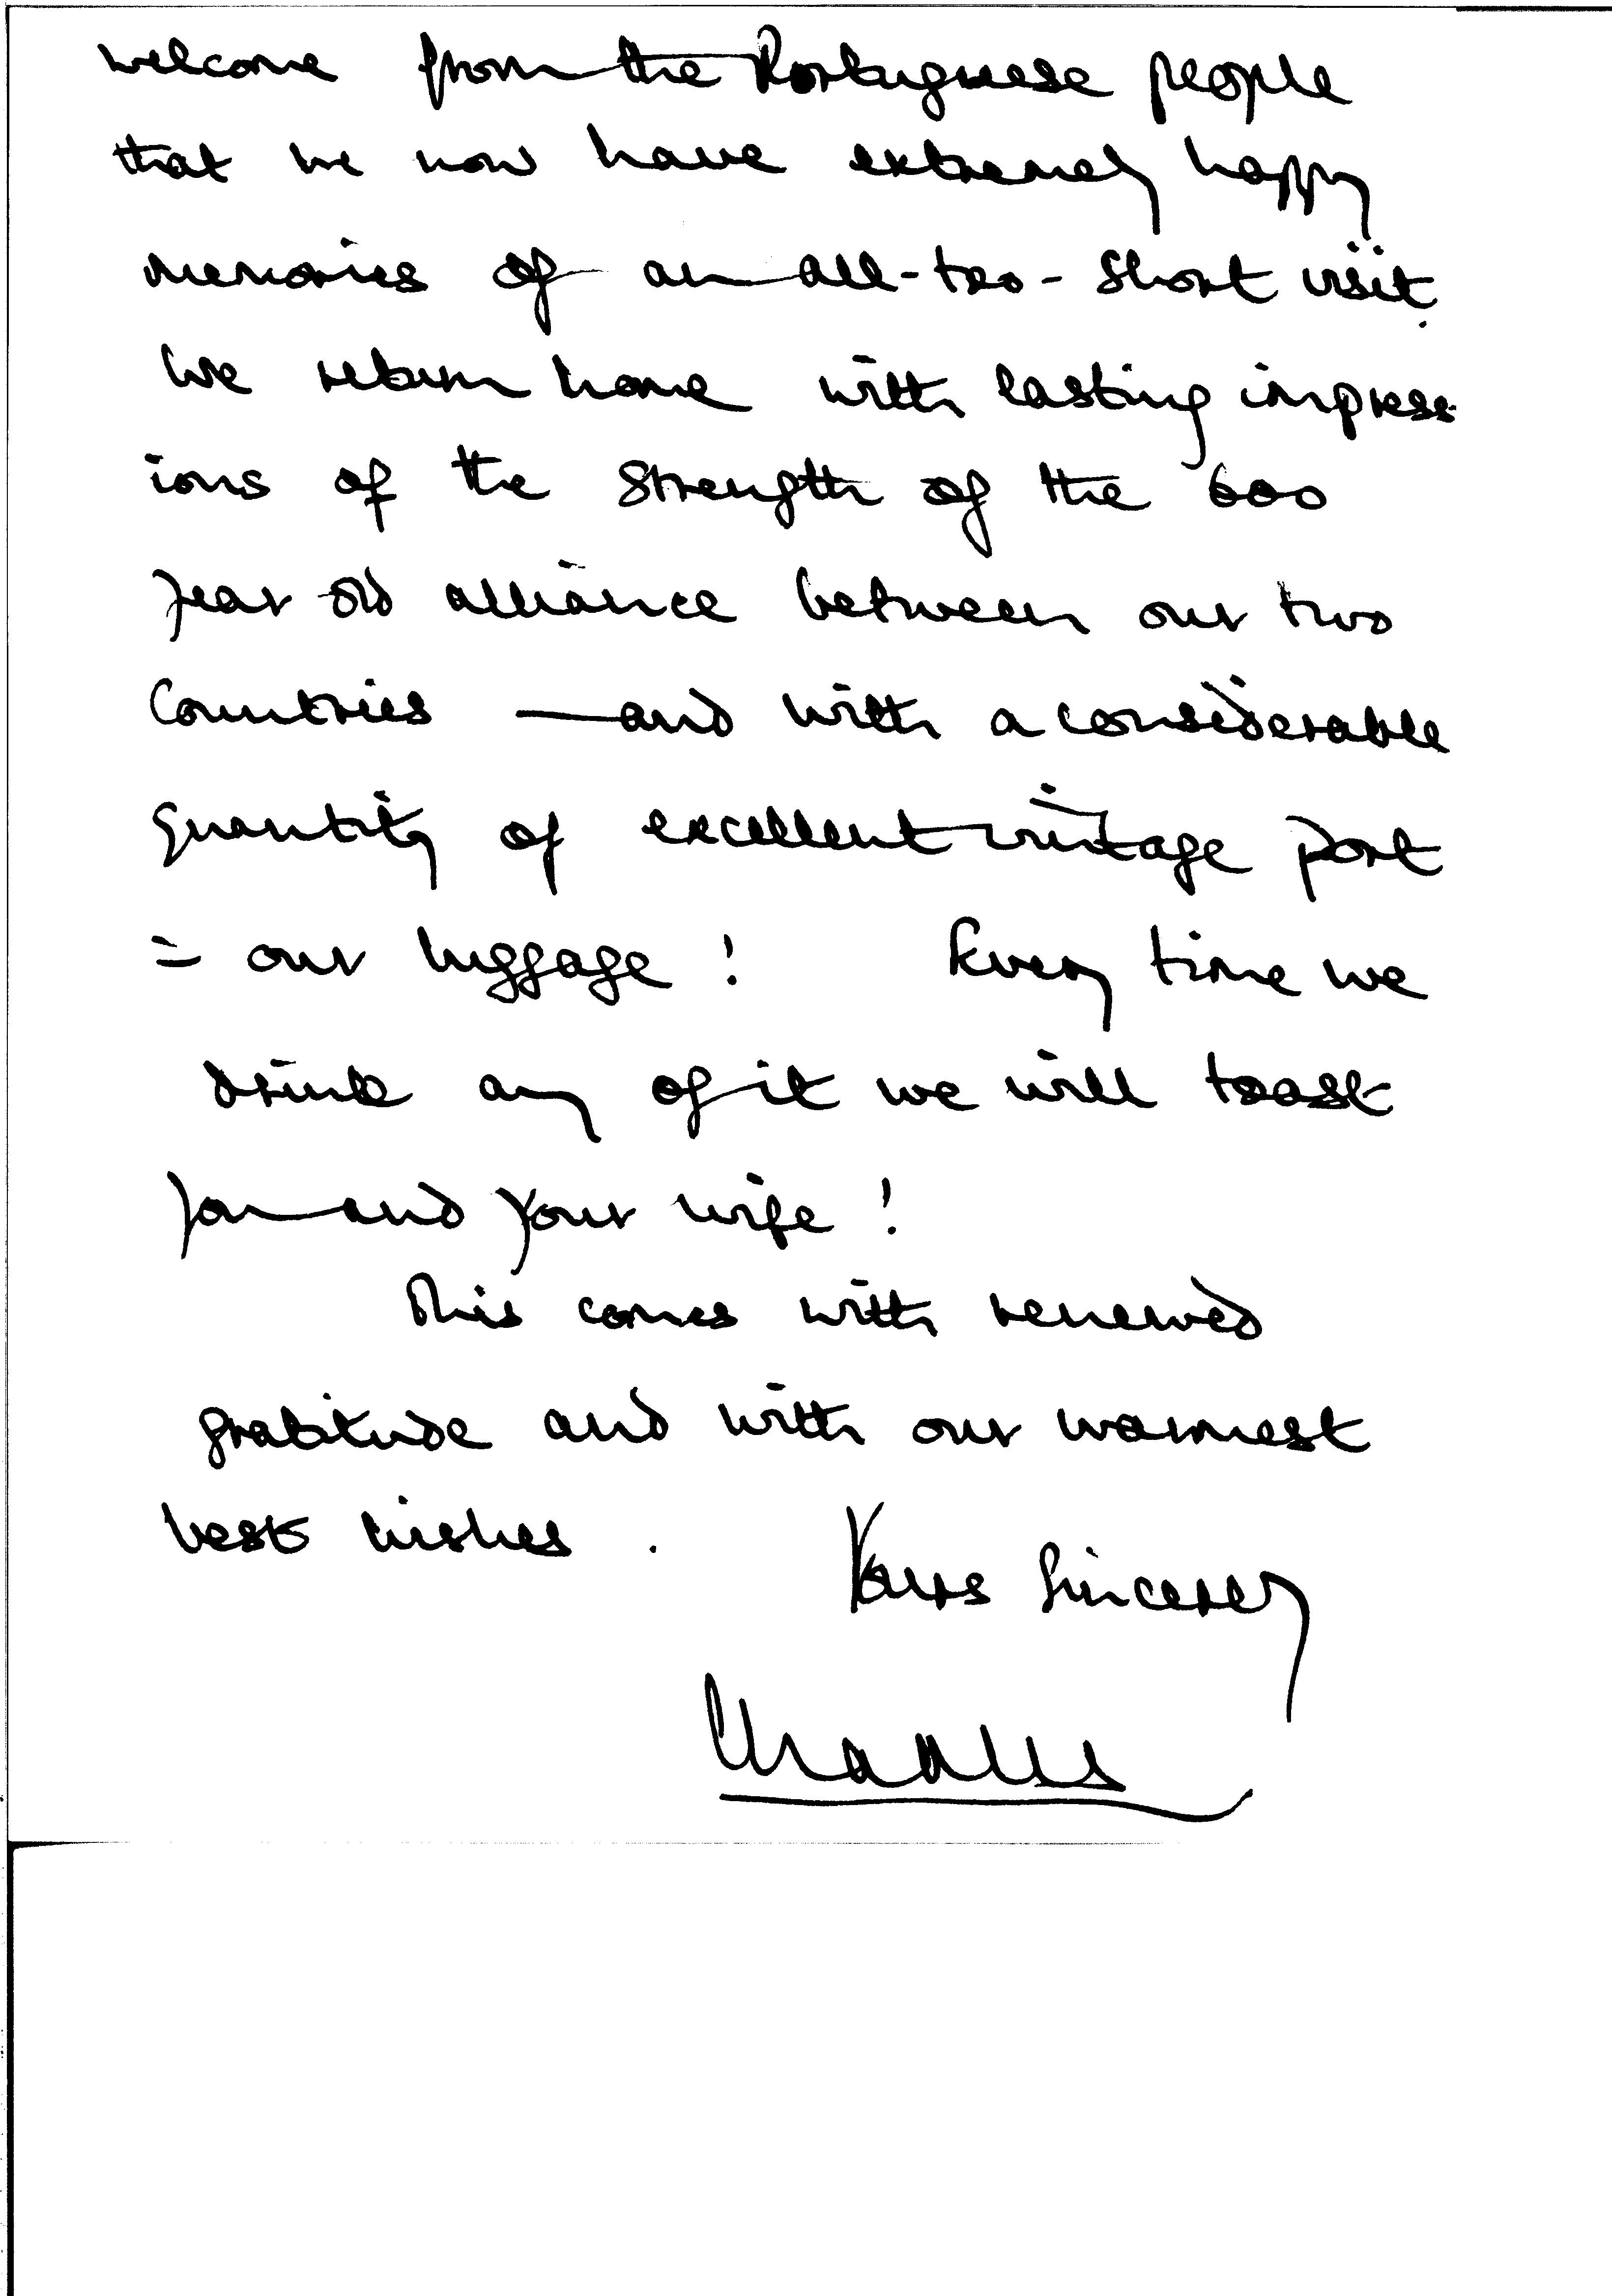 welcome from the Portuguese people
that we now have extremely happy
memories of an all-too-short visit.
We return home with lasting impress-
ions of the strength of the 600
year old alliance between our two
Countries — and with a considerable
quantity of excellent vintage port
in our luggage! Every time we
drink any of it we will toast
you and your wife!
This comes with renewed
gratitude and with our warmest
best wishes.
Yours Sincerely
Charles